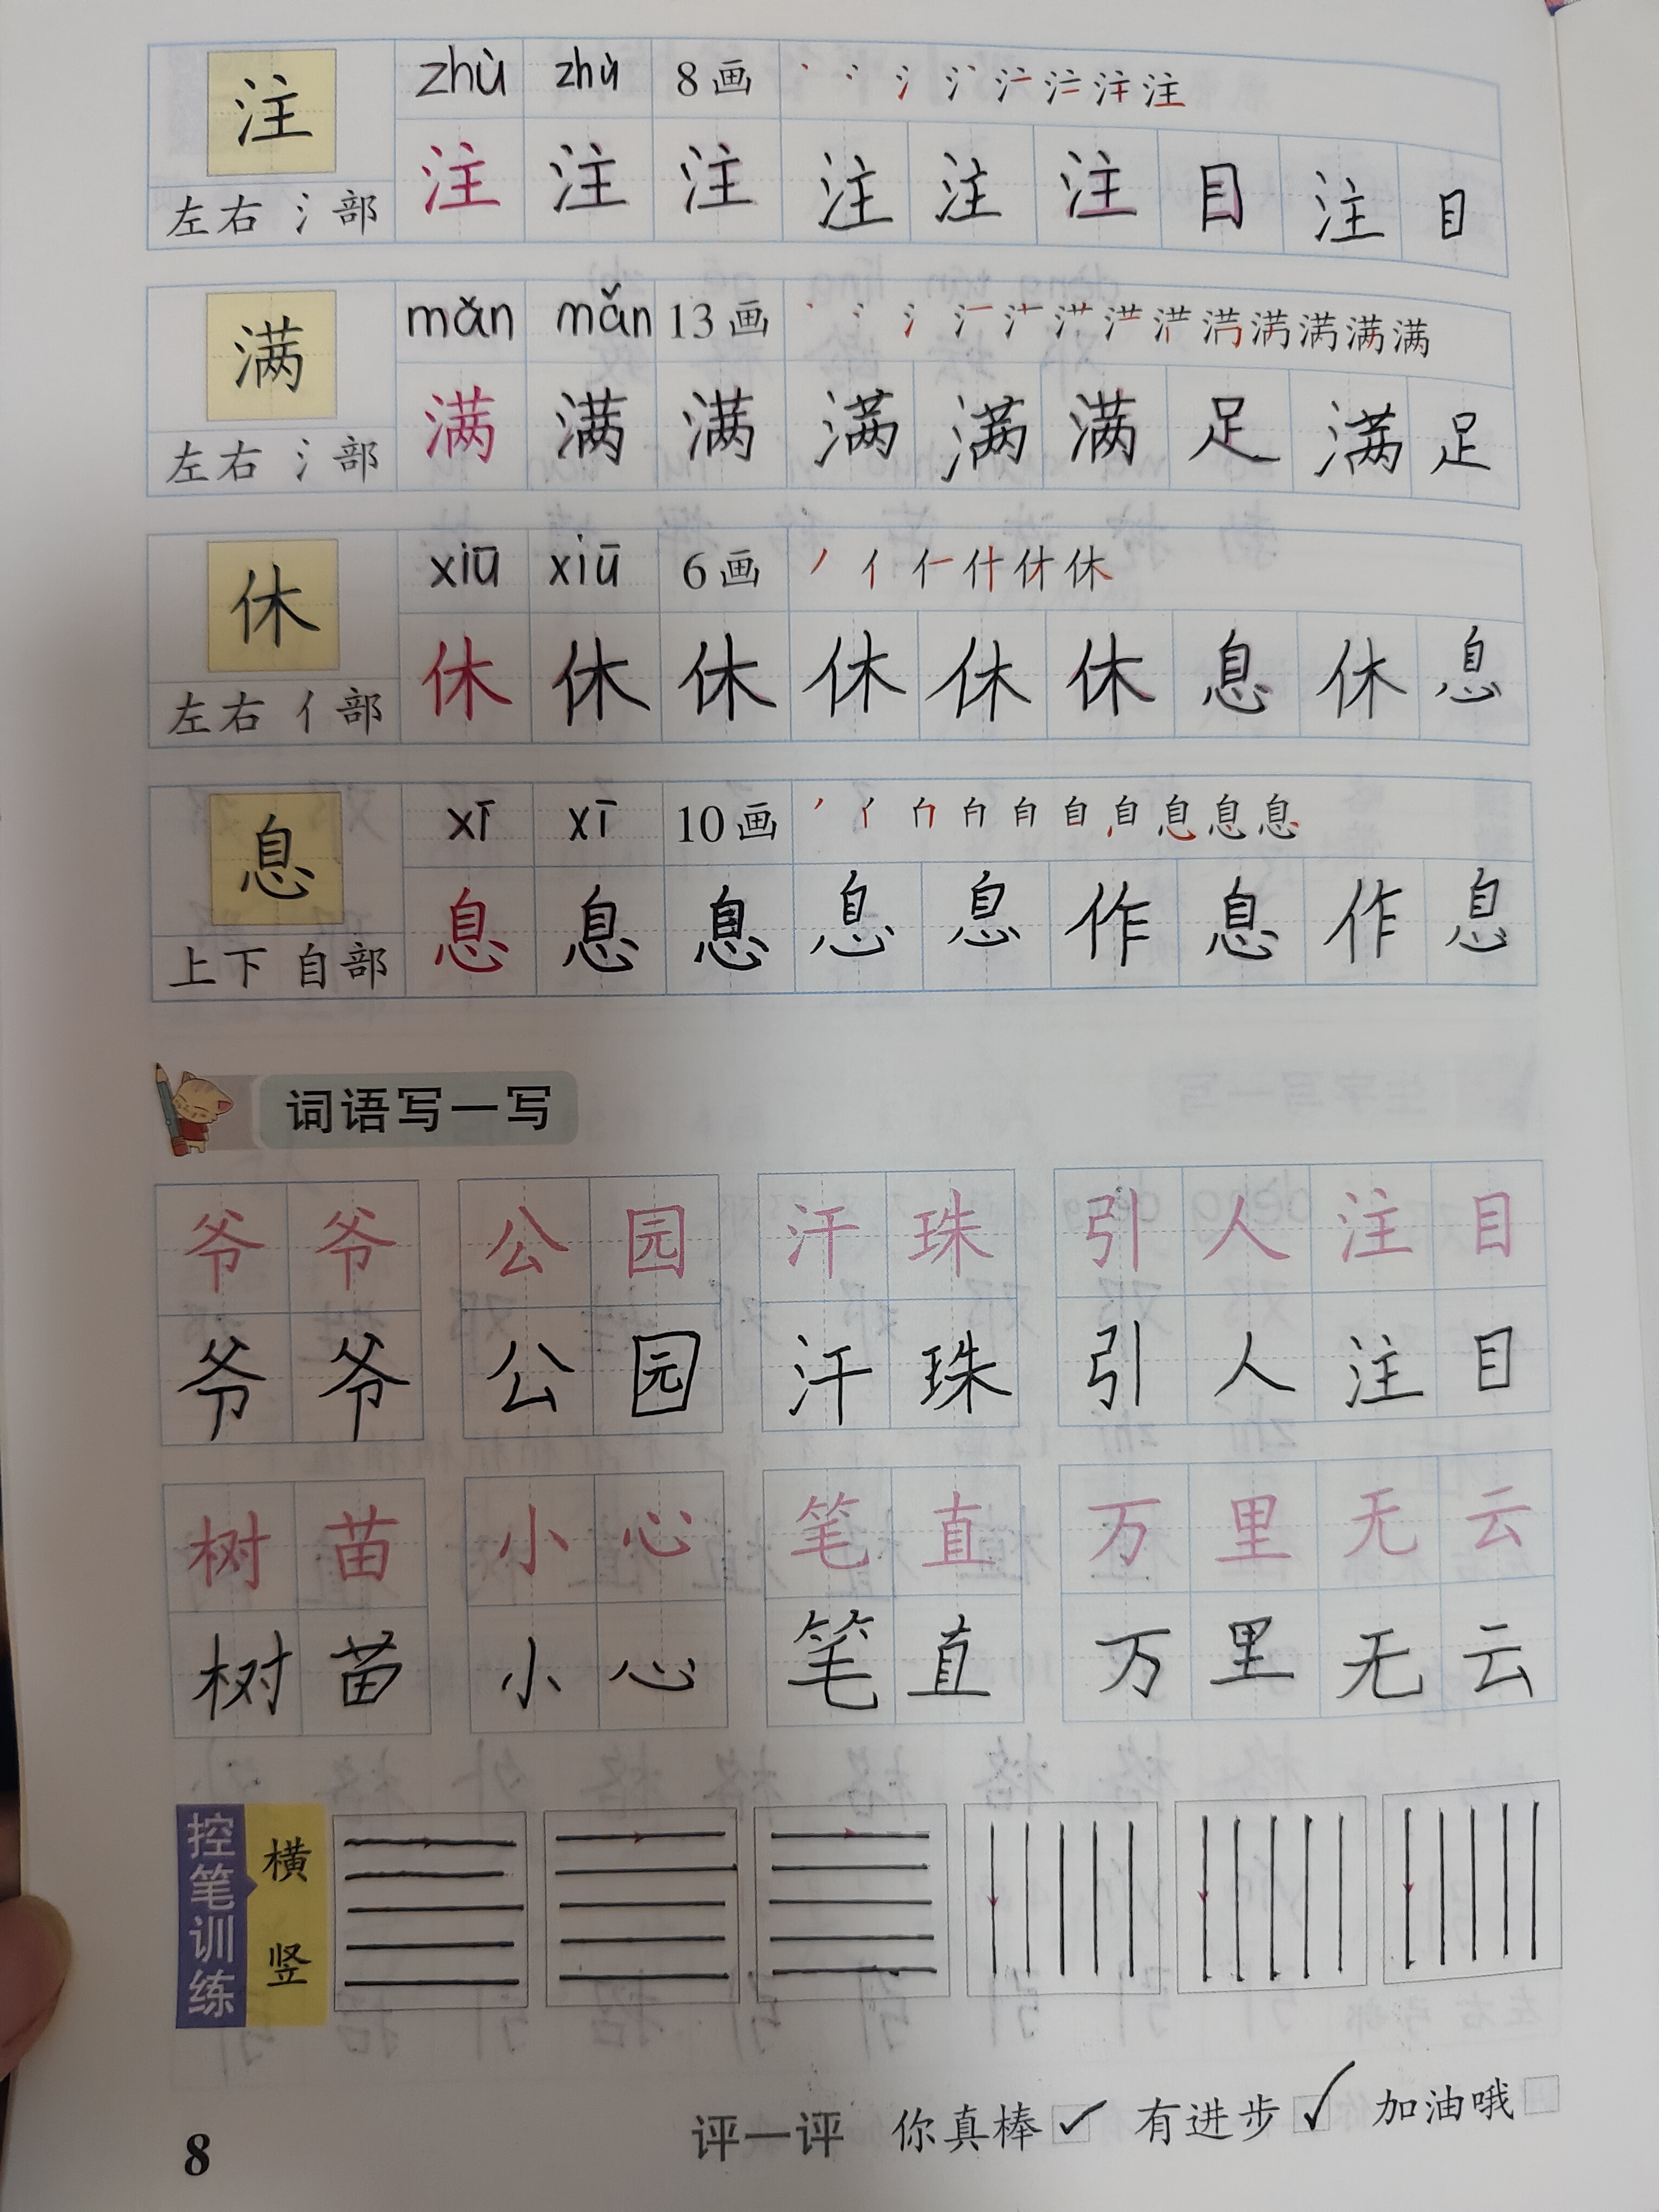 注 zhù zhù 8画 丶 冫 氵 氵 注 注 注 注
左右 氵部 注 注 注 注 注 注 目 注 目
满 mǎn mǎn 13画 满 满 满 满
左右 氵部 满 满 满 满 满 满 足 满 足
休 xiū xiū 6画 丿 亻 仁 什 休 休
左右 亻部 休 休 休 休 休 休 息 休 息
息 xī xī 10画 自 自 自 息 息 息
上下 自部 息 息 息 息 息 作 息 作 息
词语写一写
爷 爷 公 园 汗 珠 引 人 注 目
爷 爷 公 园 汗 珠 引 人 注 目
树 苗 小 心 笔 直 万 里 无 云
树 苗 小 心 笔 直 万 里 无 云
控笔训练 横 竖
评一评 你真棒 ✓ 有进步 ✓ 加油哦
8